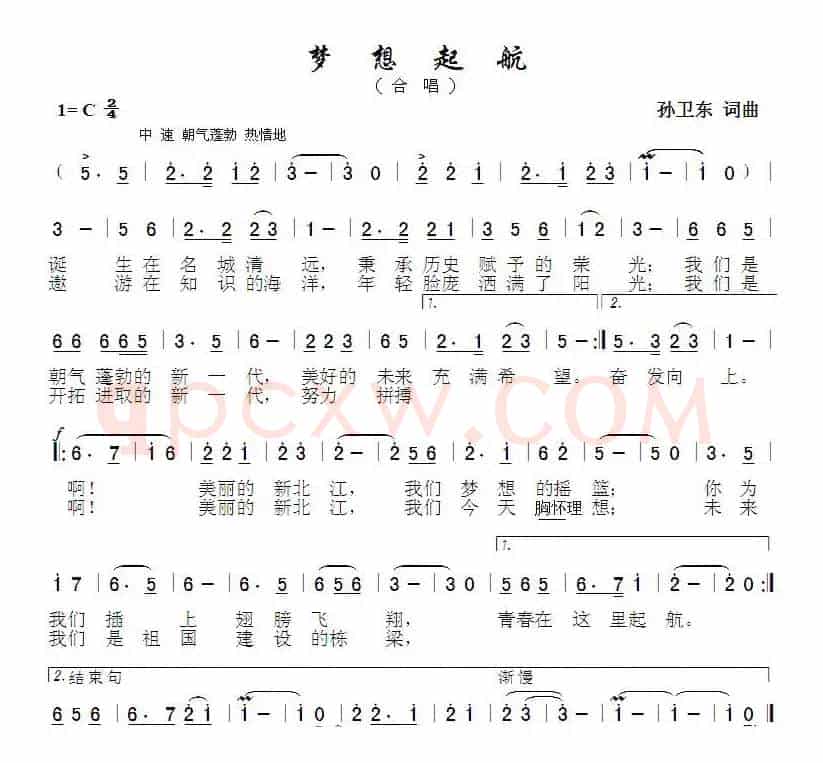 梦想起航
（合唱）
1= C 2/4 孙卫东 词曲
中速 朝气蓬勃 热情地
( 5. 5 | 2. 2 1 2 | 3 – | 3 0 | 2 2 1 | 2. 1 2 3 | 1 – | 1 0 ) |
3 – | 5 6 | 2. 2 2 3 | 1 – | 2. 2 2 1 | 3 5 6 | 1 2 | 3 – | 6 6 5 |
诞 生在 名城清 远， 秉承历史 赋予的 荣 光； 我们是
遨 游在 知识的海 洋， 年轻脸庞 洒满了 阳 光； 我们是
1. 2.
6 6 6 6 5 | 3. 5 | 6 – | 2 2 3 | 6 5 | 2. 1 2 3 | 5 – :| 5. 3 2 3 | 1 – |
朝气 蓬勃的 新 一 代， 美好的 未来 充 满希 望。 奋 发向 上。
开拓 进取的 新 一 代， 努力 拼搏
f
|: 6. 7 | 1 6 | 2 2 1 | 2 3 | 2 – | 2 5 6 | 2. 1 | 6 2 | 5 – | 5 0 | 3. 5 |
啊！ 美丽的 新北 江， 我们 梦 想 的摇 篮； 你 为
啊！ 美丽的 新北 江， 我们 今 天 胸怀理 想； 未 来
1.
1 7 | 6. 5 | 6. 5 | 6 5 6 | 3 – | 3 0 | 5 6 5 | 6. 7 1 | 2 – | 2 0 :|
我们 插 上 翅 膀 飞 翔， 青春在 这 里起 航。
我们 是 祖 国 建 设 的栋 梁，
2. 结束句 渐慢
6 5 6 | 6. 7 | 2 1 | 1 – | 1 0 | 2 2. | 2 1 | 2 3 | 3 – | 1 – | 1 – | 1 0 |